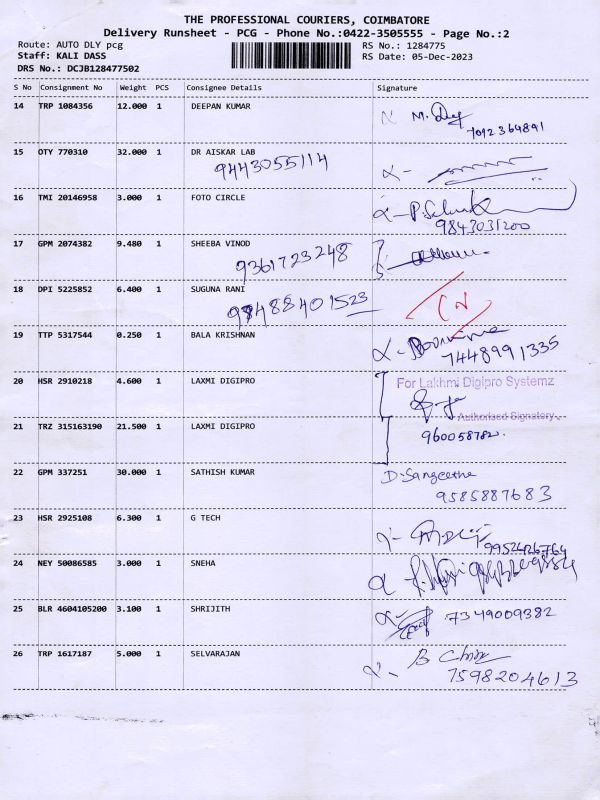 THE PROFESSIONAL COURIERS, COIMBATORE
Delivery Runsheet - PCG - Phone No.:0422-3505555 - Page No.:2
Route: AUTO DLY pcg RS No.: 1284775
Staff: KALI DASS RS Date: 05-Dec-2023
DRS No.: DCJB128477502
S No Consignment No Weight PCS Consignee Details Signature
14 TRP 1084356 12.000 1 DEEPAN KUMAR
7012364891
15 OTY 770310 32.000 1 DR AISKAR LAB
9443055114
16 TMI 20146958 3.000 1 FOTO CIRCLE
9843031200
17 GPM 2074382 9.480 1 SHEEBA VINOD
9361723248
18 DPI 5225852 6.400 1 SUGUNA RANI
19 TTP 5317544 0.250 1 BALA KRISHNAN
7448991335
20 HSR 2910218 4.600 1 LAXMI DIGIPRO For Lakhmi Digipro Systemz
Authorised Signatory
21 TRZ 315163190 21.500 1 LAXMI DIGIPRO
960058782
22 GPM 337251 30.000 1 SATHISH KUMAR D. Sangeetha
9585887683
23 HSR 2925108 6.300 1 G TECH
9952426764
24 NEY 50086585 3.000 1 SNEHA
25 BLR 4604105200 3.100 1 SHRIJITH 7349009382
26 TRP 1617187 5.000 1 SELVARAJAN
7598204613